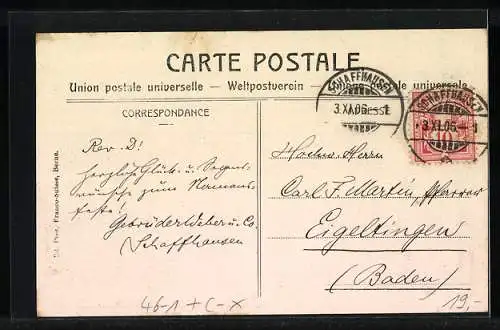 CARTE POSTALE
Union postale universelle – Weltpostverein – Unione postale universale
SCHAFFHAUSEN
3.XI.06.
SCHAFFHAUSEN
3.XI.06.
10
CORRESPONDANCE
Rev. D!
herzliche Glück- u. Segens-
wünsche zum Namens-
feste!
Gebrüder Weber u. Co.
Schaffhausen
Hochw. Herrn
Carl F. Martin, Pfarrer
Eigeltingen
(Baden)
Franco-Suisse, Berne.
46-1 + C-X
19,-